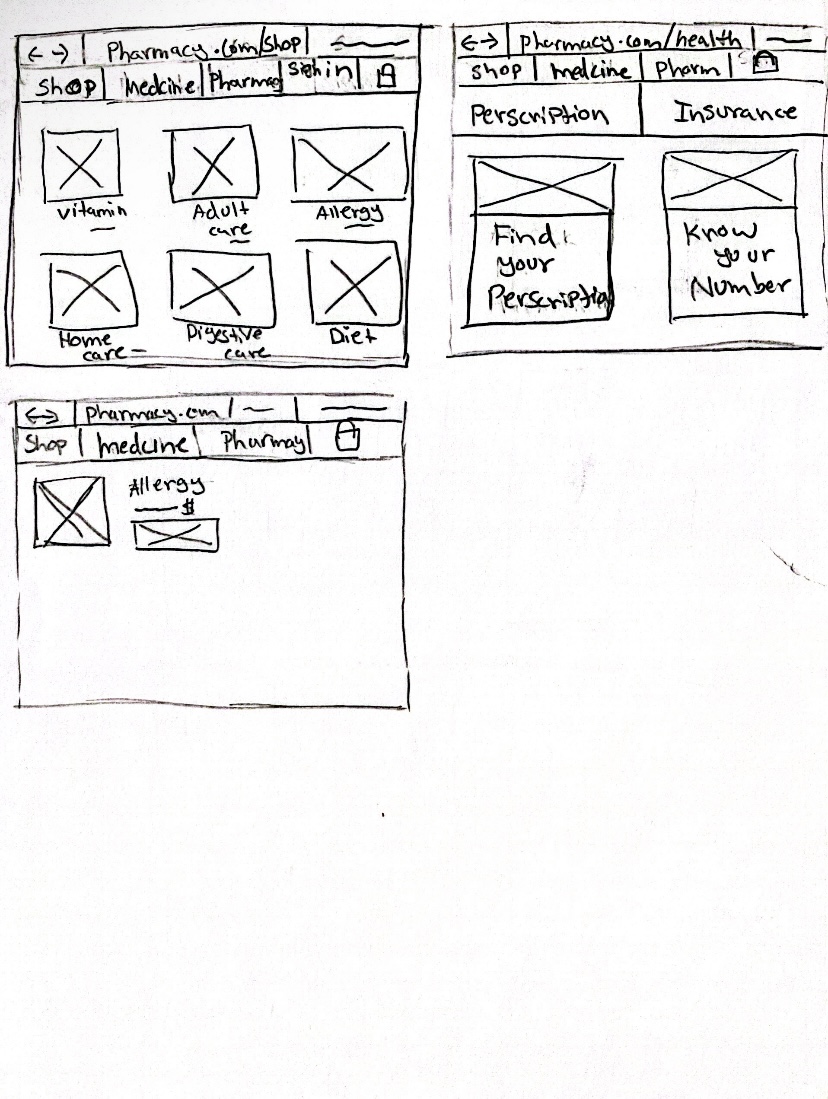 Pharmacy.com/shop
Shop Medcine Pharmacy Sign in
vitamin Adult care Allergy
Home care Digestive care Diet
pharmacy.com/health
shop medcine Pharm
Perscription Insurance
Find your Perscription
Know your Number
pharmacy.com
Shop medcine Pharmay
Allergy
$